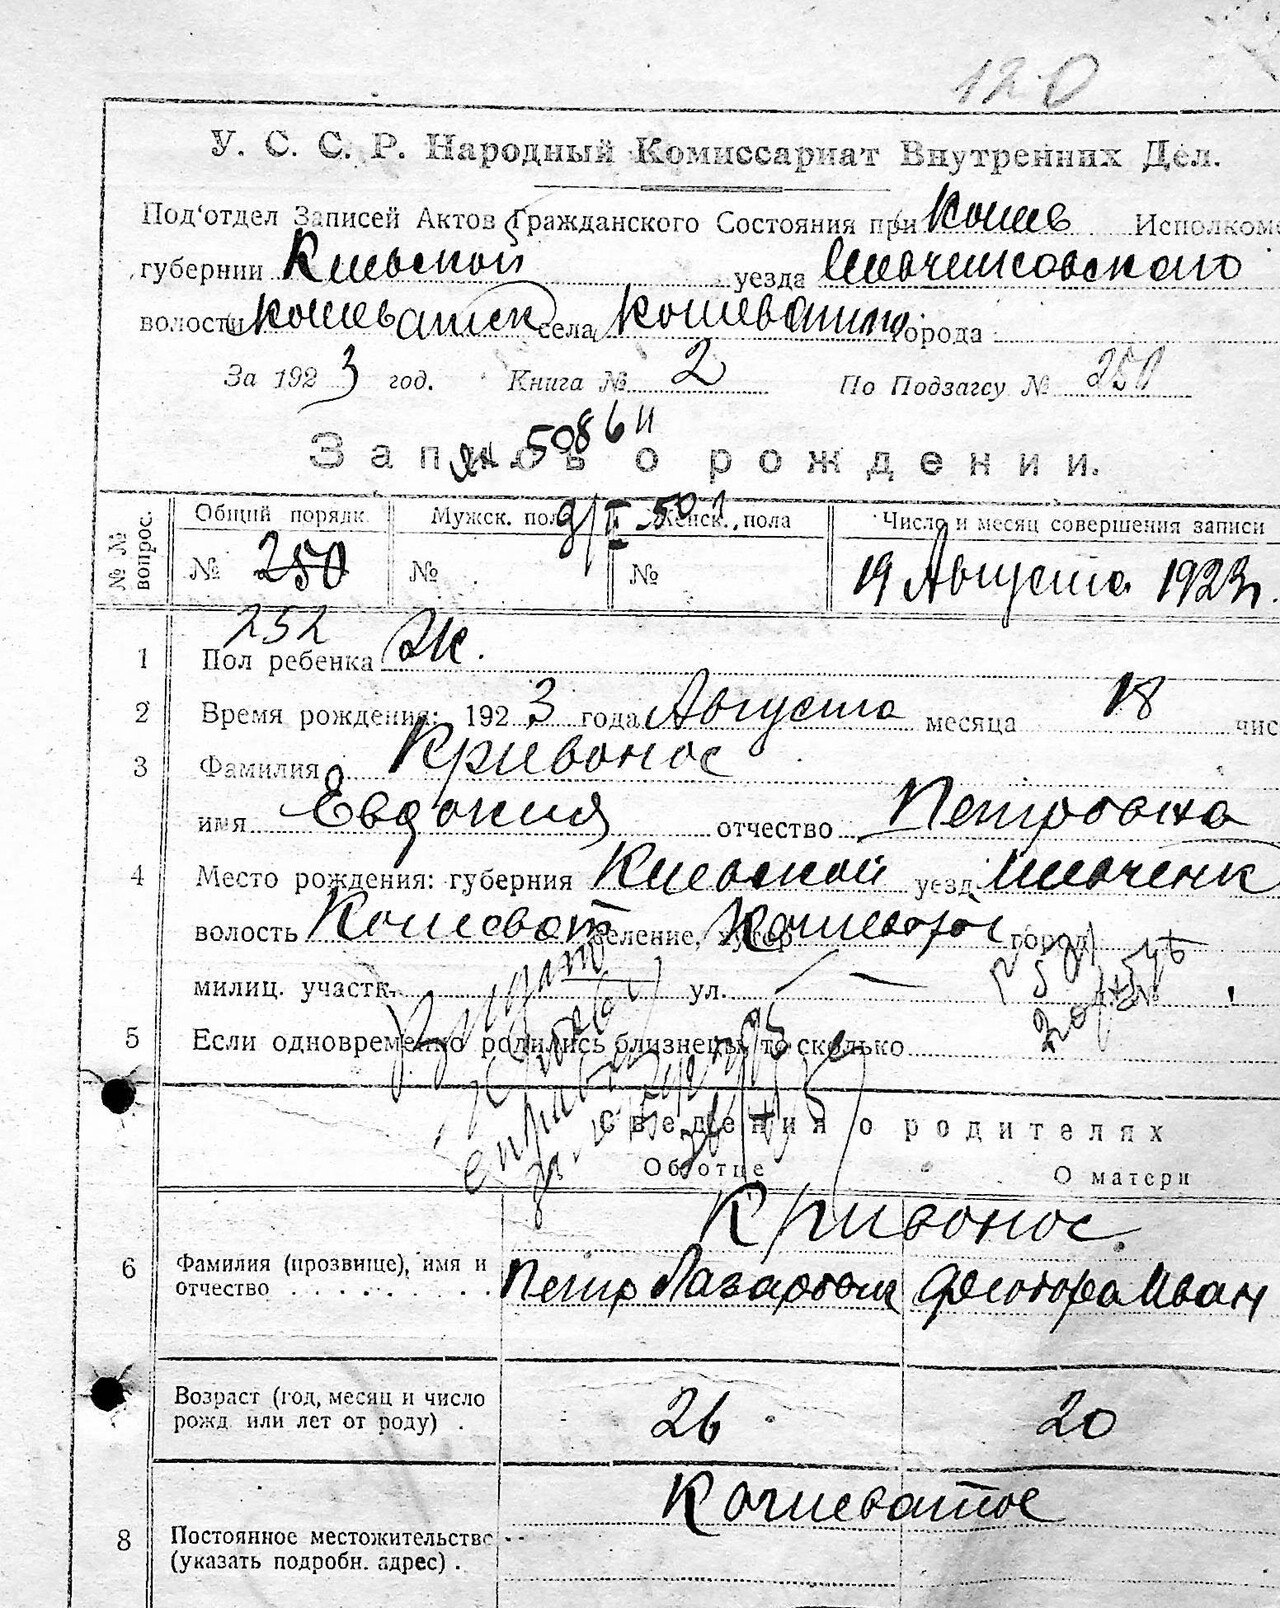 120
У. С. С. Р. Народный Комиссариат Внутренних Дел.
Под'отдел Записей Актов Гражданского Состояния при Кошев Исполкоме
губернии Киевской уезда Шевченковского
волости Кошеватск села Кошеватое города
За 1923 год. Книга № 2 По Подзагсу № 250
5086
Запись о рождении.
№ № вопрос. Общий порядк. Мужск. пола Женск. пола Число и месяц совершения записи
№ 250 № № 19 Августа 1923 г.
252
1 Пол ребенка Ж.
2 Время рождения: 1923 года Августа месяца 18 чис
3 Фамилия Кривонос
имя Евдокия отчество Петровна
4 Место рождения: губерния Киевской уезд Шевченк
волость Кошеват селение, хутор Кошеватое город
милиц. участк. ул.
5 Если одновременно родились близнецы, то сколько
Сведения о родителях
Об отце О матери
Кривонос
6 Фамилия (прозвище), имя и отчество Петр Лазарович Феодора Иван
Возраст (год, месяц и число рожд. или лет от роду) . 26 20
Кошеватое
8 Постоянное местожительство (указать подробн. адрес) .